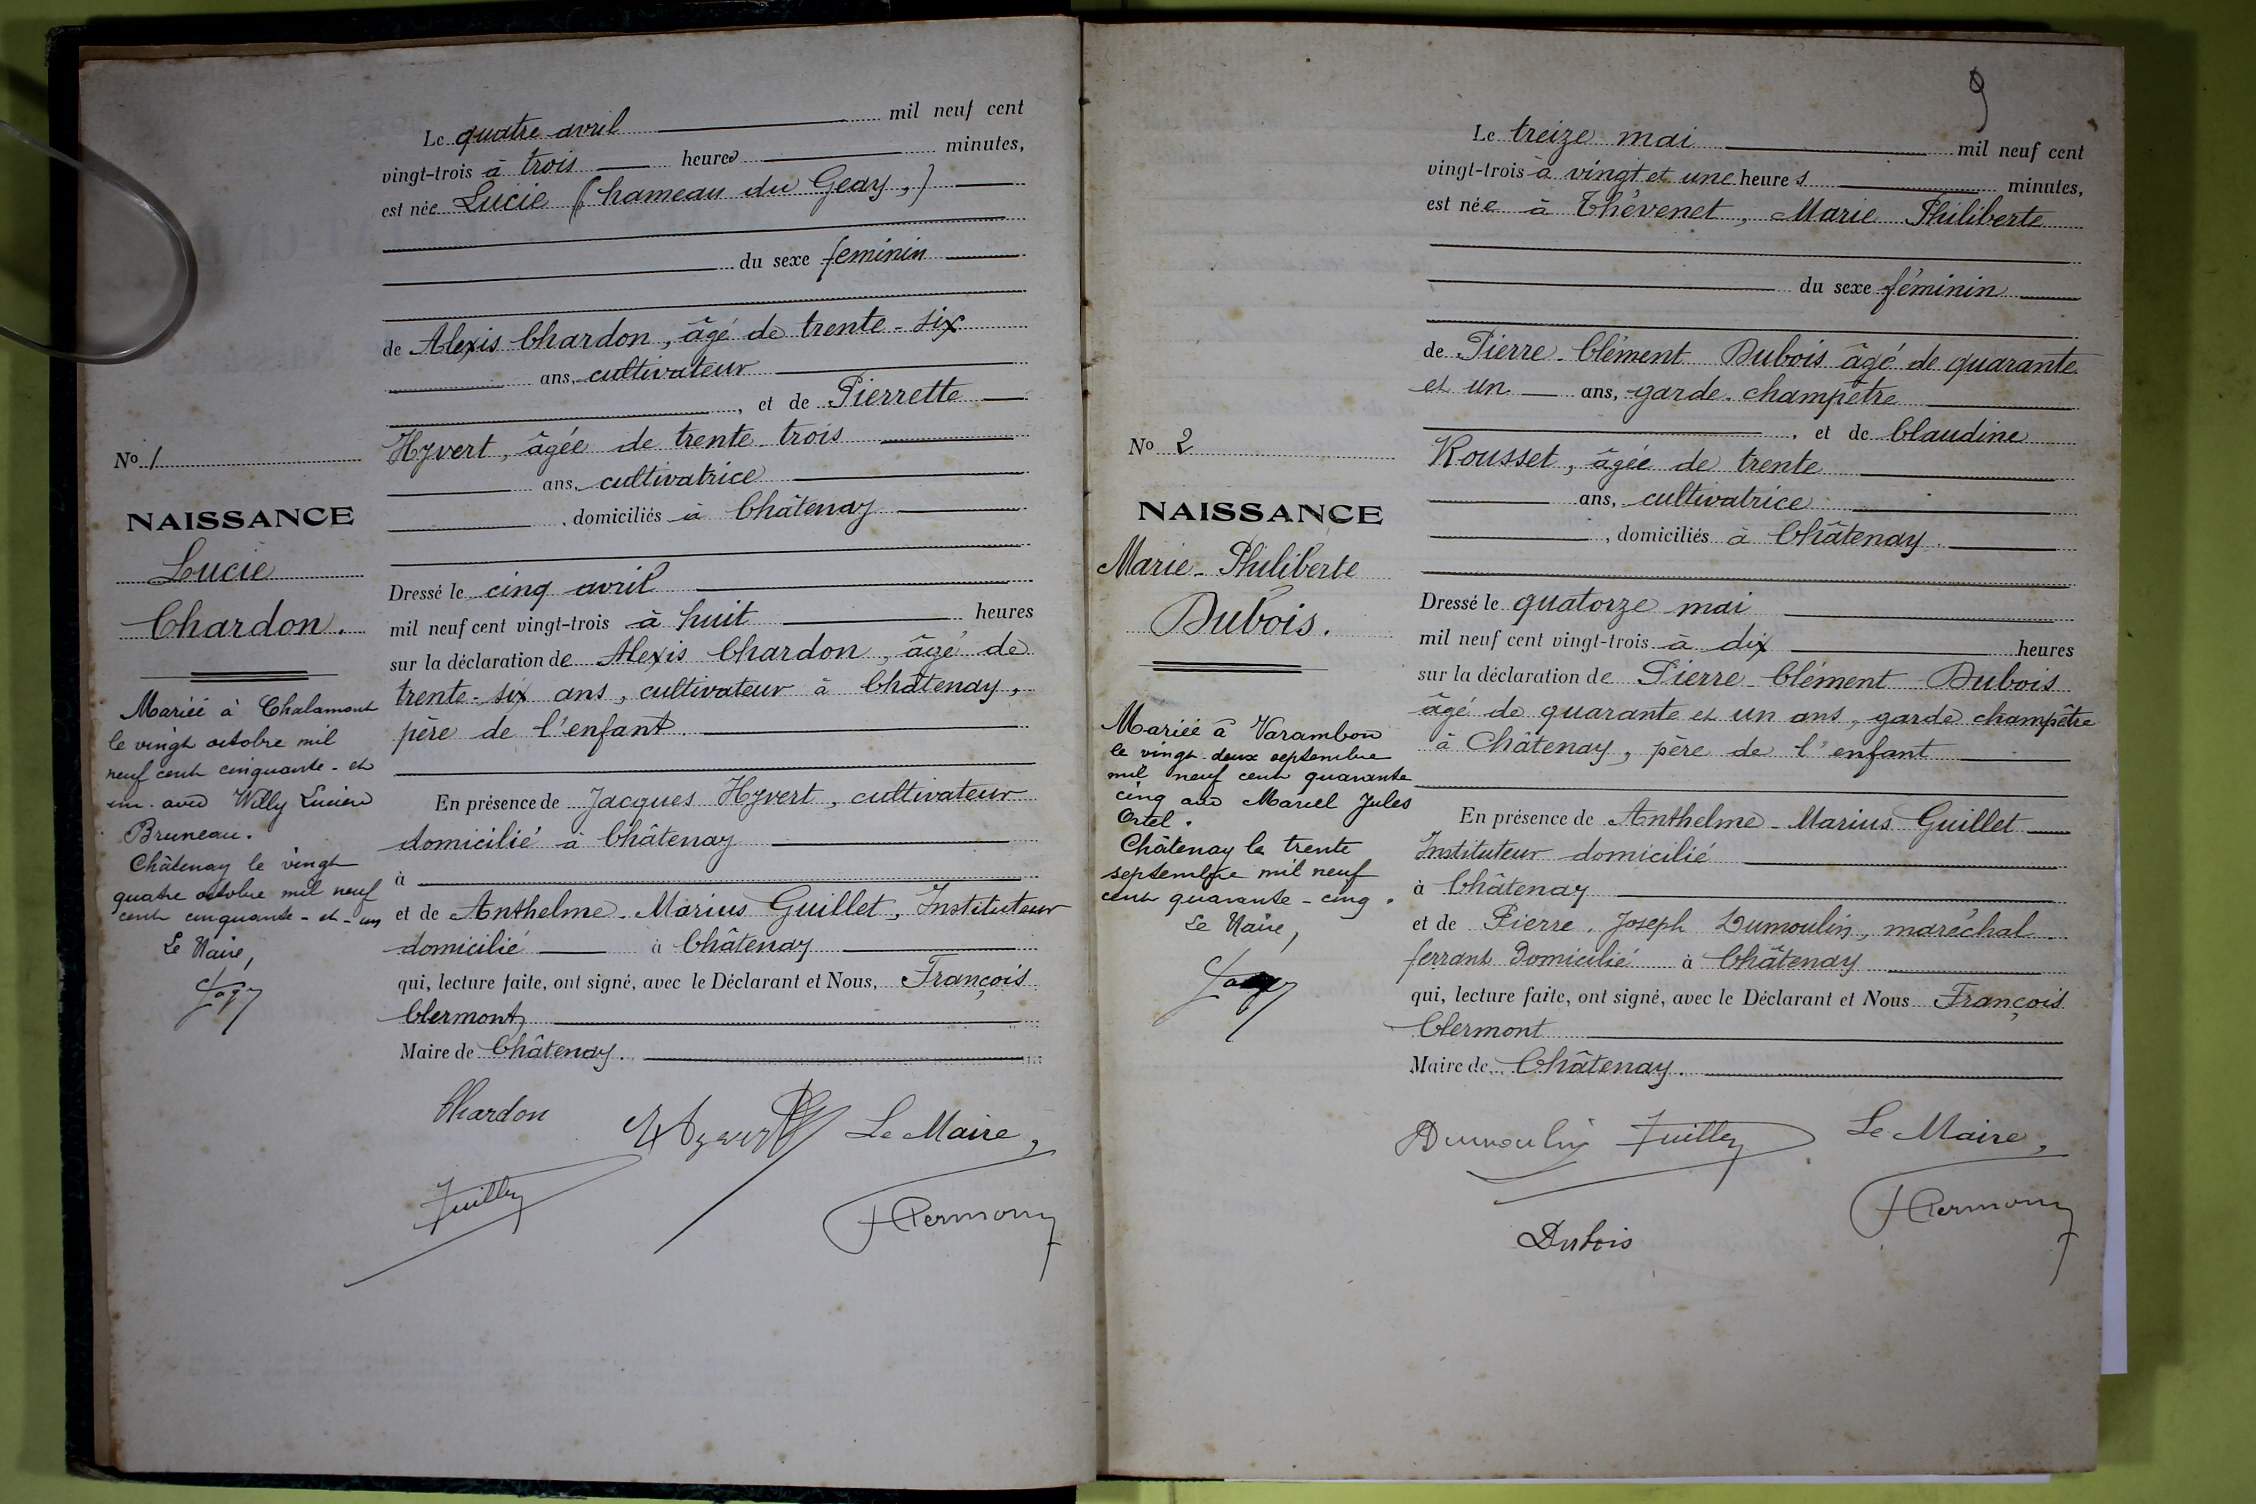 Le quatre avril mil neuf cent
vingt-trois à trois heures minutes,
est née Lucie (hameau du Geay,)
du sexe feminin
de Alexis Chardon, âgé de trente-six
ans, cultivateur
, et de Pierrette
Hyvert, âgée de trente-trois
ans, cultivatrice
, domiciliés à Châtenay
Dressé le cinq avril
mil neuf cent vingt-trois à huit heures
sur la déclaration de Alexis Chardon, âgé de
trente-six ans, cultivateur à Châtenay,
père de l'enfant.
En présence de Jacques Hyvert, cultivateur
domicilié à Châtenay
à
et de Anthelme-Marius Guillet, Instituteur
domicilié à Châtenay
qui, lecture faite, ont signé, avec le Déclarant et Nous, François
Clermont,
Maire de Châtenay.
Chardon
Hyvert
Le Maire,
Guillet
F Clermont
No 1
NAISSANCE
Lucie
Chardon.
Mariée à Chalamont
le vingt octobre mil
neuf cent cinquante-et
un avec Willy Lucien
Bruneau.
Châtenay le vingt
quatre octobre mil neuf
cent cinquante-et-un
Le Maire,
9
Le treize mai mil neuf cent
vingt-trois à vingt et une heures minutes,
est née à Thévenet, Marie Philiberte
du sexe féminin
de Pierre-Clément Dubois âgé de quarante
et un ans, garde-champêtre
, et de Claudine
Rousset, âgée de trente
ans, cultivatrice
, domiciliés à Châtenay.
Dressé le quatorze mai
mil neuf cent vingt-trois à dix heures
sur la déclaration de Pierre-Clément Dubois
âgé de quarante et un ans, garde champêtre
à Châtenay, père de l'enfant
En présence de Anthelme-Marius Guillet
Instituteur domicilié
à Châtenay
et de Pierre-Joseph Dumoulin, maréchal
ferrant Domicilié à Châtenay
qui, lecture faite, ont signé, avec le Déclarant et Nous François
Clermont
Maire de Châtenay.
Dumoulin
Guillet
Le Maire,
F Clermont
Dubois
No 2
NAISSANCE
Marie-Philiberte
Dubois.
Mariée à Varambon
le vingt-deux septembre
mil neuf cent quarante
cinq avec Marcel Jules
Ortel.
Châtenay le trente
septembre mil neuf
cent quarante-cinq.
Le Maire,